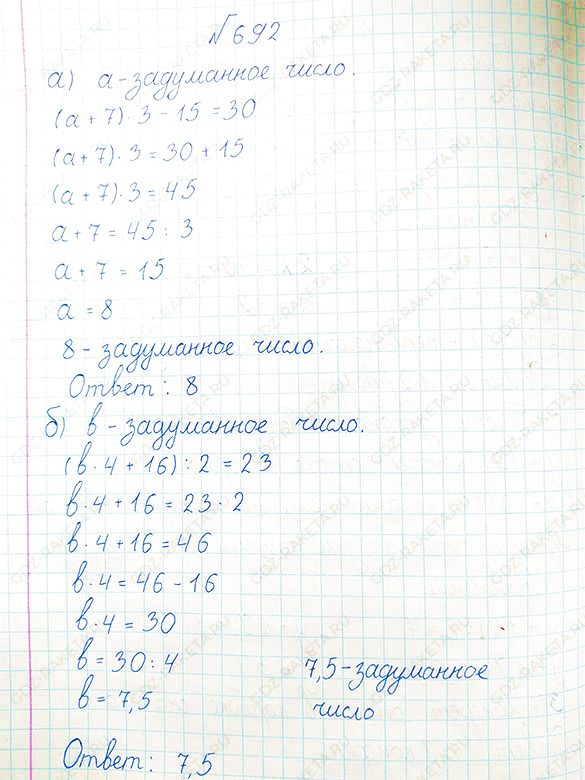 №692
а) а - задуманное число.
(а + 7) · 3 - 15 = 30
(а + 7) · 3 = 30 + 15
(а + 7) · 3 = 45
а + 7 = 45 : 3
а + 7 = 15
а = 8
8 - задуманное число.
Ответ: 8
б) в - задуманное число.
(в · 4 + 16) : 2 = 23
в · 4 + 16 = 23 · 2
в · 4 + 16 = 46
в · 4 = 46 - 16
в · 4 = 30
в = 30 : 4
в = 7,5
7,5 - задуманное
число
Ответ: 7,5
GDZ-RAKETA.RU